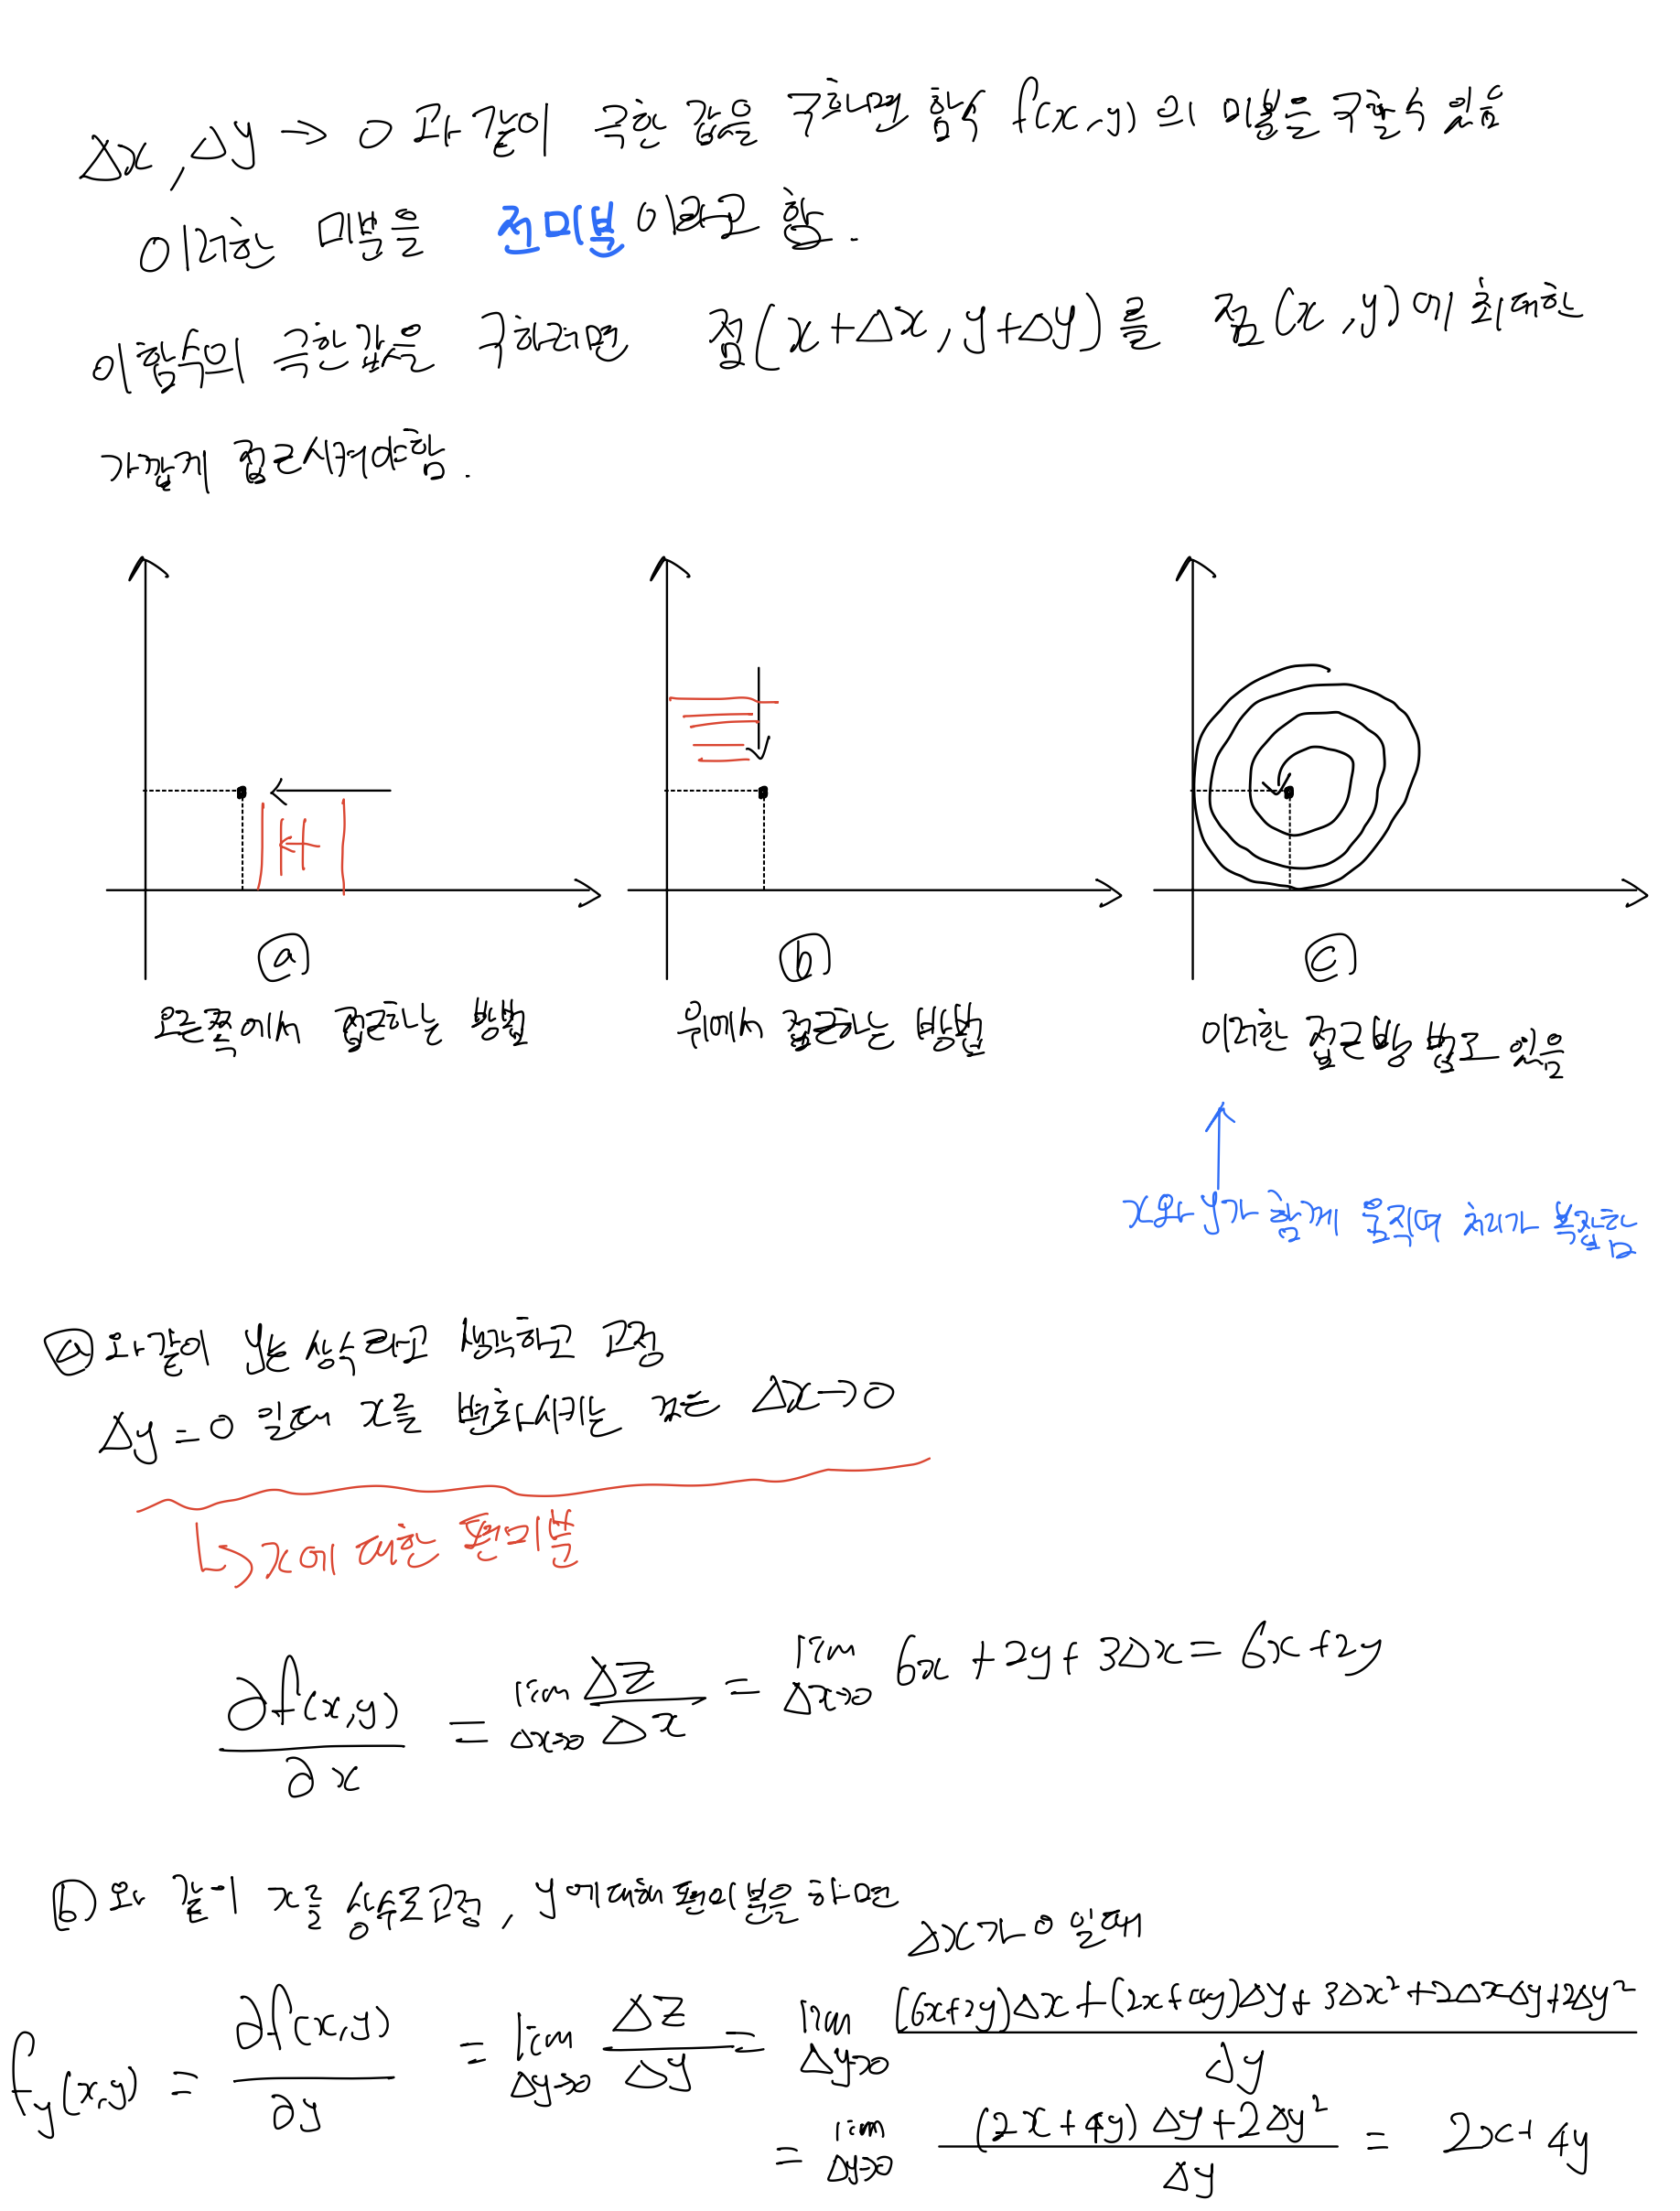 Δx, Δy → 0 과 같이 극한 값을 구하면 함수 f(x,y) 의 미분을 구할 수 있음
이러한 미분을 전미분 이라고 함.
이 함수의 극한값을 구하려면 점(x+Δx, y+Δy)를 점(x,y)에 최대한
가깝게 접근시켜야함.
ⓐ ⓑ ⓒ
오른쪽에서 접근하는 방법 위에서 접근하는 방법 이러한 접근 방법도 있음
↑
x와 y가 함께 움직여 처리가 복잡함
ⓐ와 같이 y는 상수라고 생각하고 고정
Δy = 0 일때 x를 변화시키는 것은 Δx→0
↳ x에 대한 편미분
∂f(x,y)/∂x = lim Δx→0 Δz/Δx = lim Δx→0 6x + 2y + 3Δx = 6x + 2y
ⓑ와 같이 x를 상수로 고정, y에 대해 편미분을 하면
Δx가 0 일때
fy(x,y) = ∂f(x,y)/∂y = lim Δy→0 Δz/Δy = lim Δy→0 (6x+2y)Δx + (2x+4y)Δy + 3Δx² + 2ΔxΔy + 2Δy² / Δy
= lim Δy→0 (2x+4y)Δy + 2Δy² / Δy = 2x + 4y